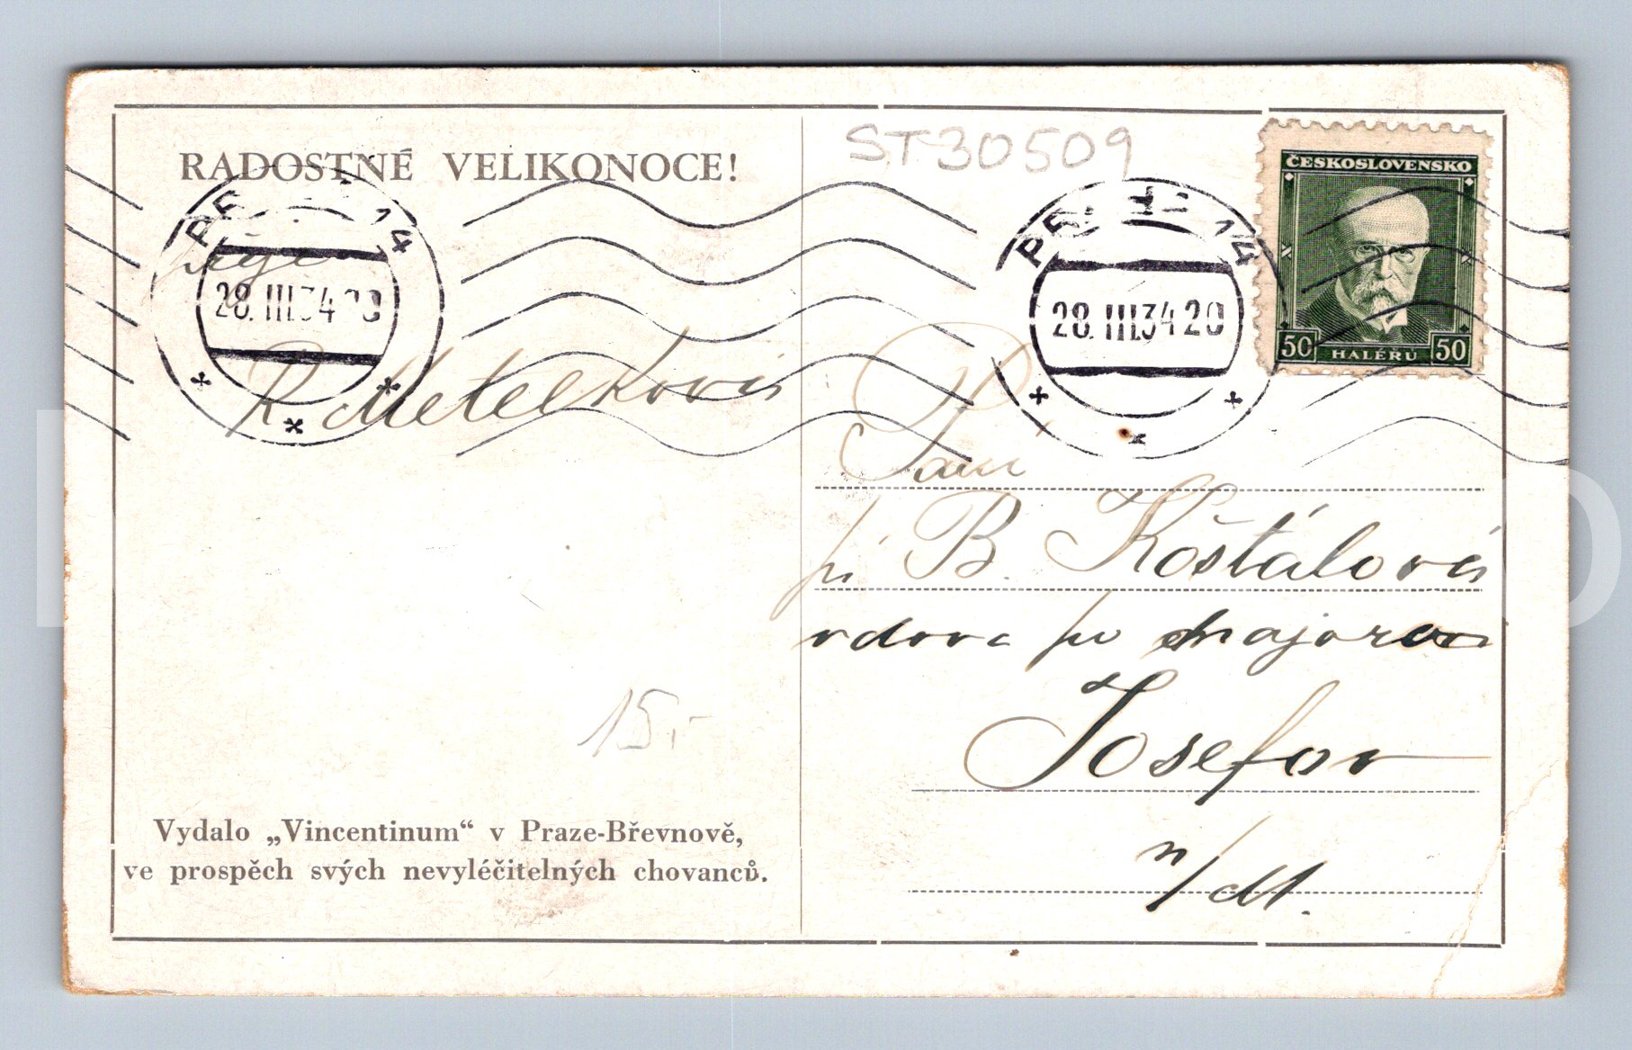 RADOSTNÉ VELIKONOCE!
ST30509
ČESKOSLOVENSKO
50 HALÉŘŮ 50
PRAHA 14
28. III. 34 20
PRAHA 14
28. III. 34 20
přeje
R Metelková
Paní
pí B. Košťálová
vdova po majorovi
Josefov
n/M.
15.-
Vydalo „Vincentinum“ v Praze-Břevnově,
ve prospěch svých nevyléčitelných chovanců.